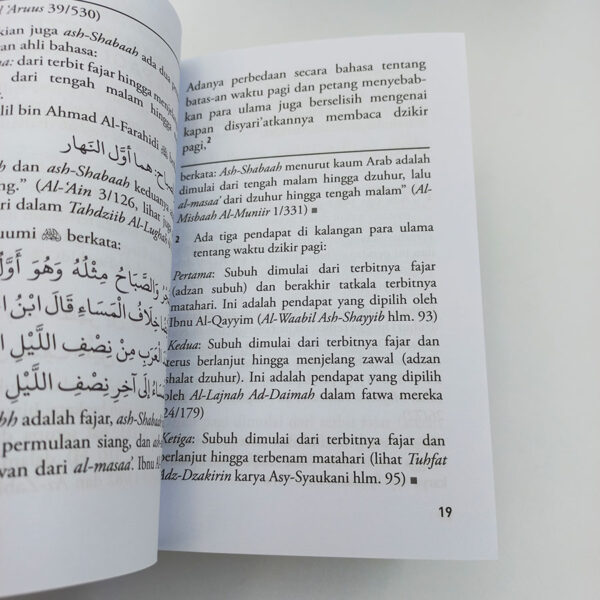 'Aruus 39/530)
kian juga ash-Shabaah ada dua
an ahli bahasa:
na: dari terbit fajar hingga
dari tengah malam hingga
lil bin Ahmad Al-Farahidi
هما أوَّل النَّهار
dan ash-Shabaah keduanya
ng." (Al-'Ain 3/126, lihat juga
ri dalam Tahdziib Al-Lughah
uumi ﷺ berkata:
وَالصَّبَاحُ مِثْلُهُ وَهُوَ أَوَّلُ
خِلَافُ الْمَسَاءِ قَالَ ابْنُ
الْعَرَبِ مِنْ نِصْفِ اللَّيْلِ
إِلَى آخِرِ نِصْفِ اللَّيْلِ
adalah fajar, ash-Shabaah
permulaan siang, dan
wan dari al-masaa'. Ibnu
Adanya perbedaan secara bahasa tentang
batas-an waktu pagi dan petang menyebab-
kan para ulama juga berselisih mengenai
kapan disyari'atkannya membaca dzikir
pagi.²
berkata: Ash-Shabaah menurut kaum Arab adalah
dimulai dari tengah malam hingga dzuhur, lalu
al-masaa' dari dzuhur hingga tengah malam" (Al-
Misbaah Al-Muniir 1/331) ■
2 Ada tiga pendapat di kalangan para ulama
tentang waktu dzikir pagi:
Pertama: Subuh dimulai dari terbitnya fajar
(adzan subuh) dan berakhir tatkala terbitnya
matahari. Ini adalah pendapat yang dipilih oleh
Ibnu Al-Qayyim (Al-Waabil Ash-Shayyib hlm. 93)
Kedua: Subuh dimulai dari terbitnya fajar dan
terus berlanjut hingga menjelang zawal (adzan
shalat dzuhur). Ini adalah pendapat yang dipilih
oleh Al-Lajnah Ad-Daimah dalam fatwa mereka
24/179)
Ketiga: Subuh dimulai dari terbitnya fajar dan
berlanjut hingga terbenam matahari (lihat Tuhfat
Adz-Dzakirin karya Asy-Syaukani hlm. 95) ■
19